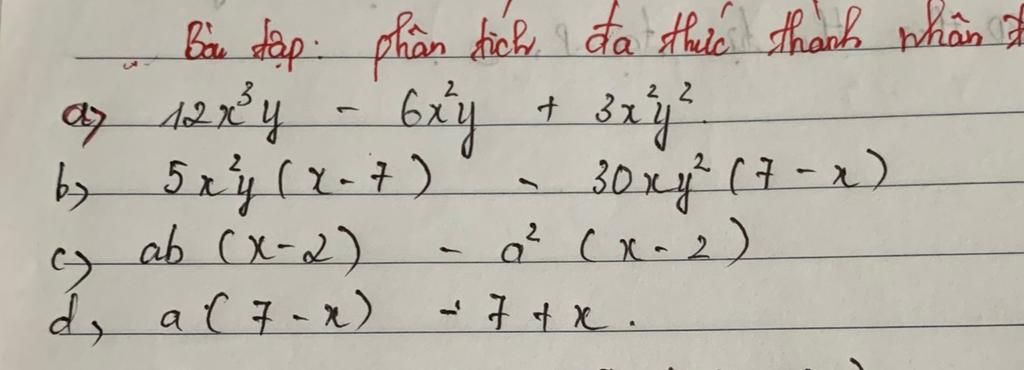 Bài tập: phân tích đa thức thành nhân
a) 12x³y - 6x²y + 3x²y²
b) 5x²y (x - 7) - 30xy² (7 - x)
c) ab (x - 2) - a² (x - 2)
d) a (7 - x) - 7 + x.